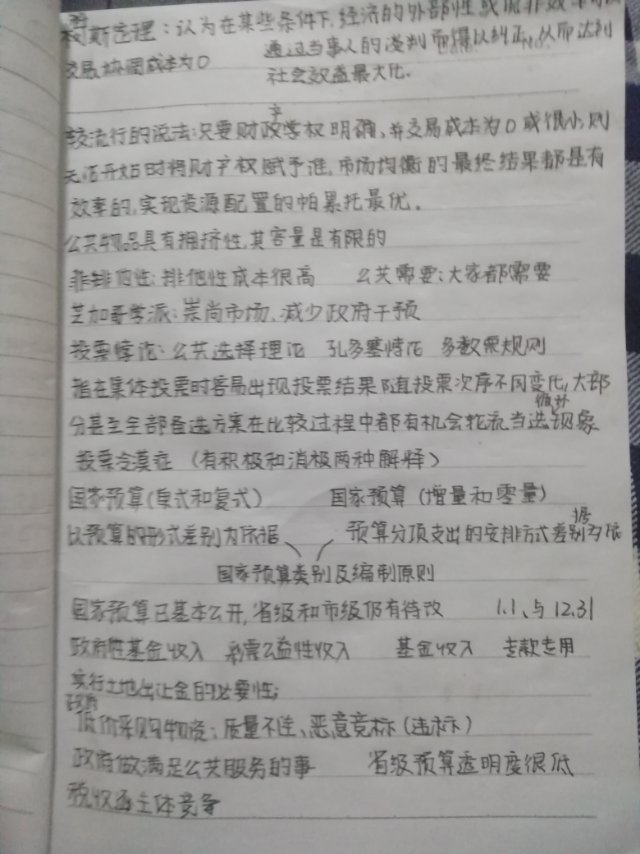 科斯定理：认为在某些条件下，经济的外部性或说非效率可以
交易协调成本为0 通过当事人的谈判而得以纠正，从而达到
社会效益最大化.
较流行的说法：只要财政产学权明确，并交易成本为0或很小，则
无论开始时将财产权赋予谁，市场均衡的最终结果都是有
效率的，实现资源配置的帕累托最优.
公共物品具有拥挤性，其容量是有限的
非排他性：排他性成本很高 公共需要：大家都需要
芝加哥学派：崇尚市场、减少政府干预
投票悖论：公共选择理论 孔多塞悖论 多数票规则
指在集体投票时容易出现投票结果随投票次序不同变化，大部
分甚至全部备选方案在比较过程中都有机会轮流当选现象
投票冷漠症（有积极和消极两种解释）
国家预算（单式和复式） 国家预算（增量和零量）
以预算的形式差别为依据 预算分项支出的安排方式差别为依据
国家预算类别及编制原则
国家预算已基本公开，省级和市级仍有待改 1.1、与12.31
政府性基金收入 彩票公益性收入 基金收入 专款专用
实行土地出让金的必要性；
政府
低价采购物资：质量不佳、恶意竞标（击标）
政府做满足公共服务的事 省级预算透明度很低
税收 主体竞争